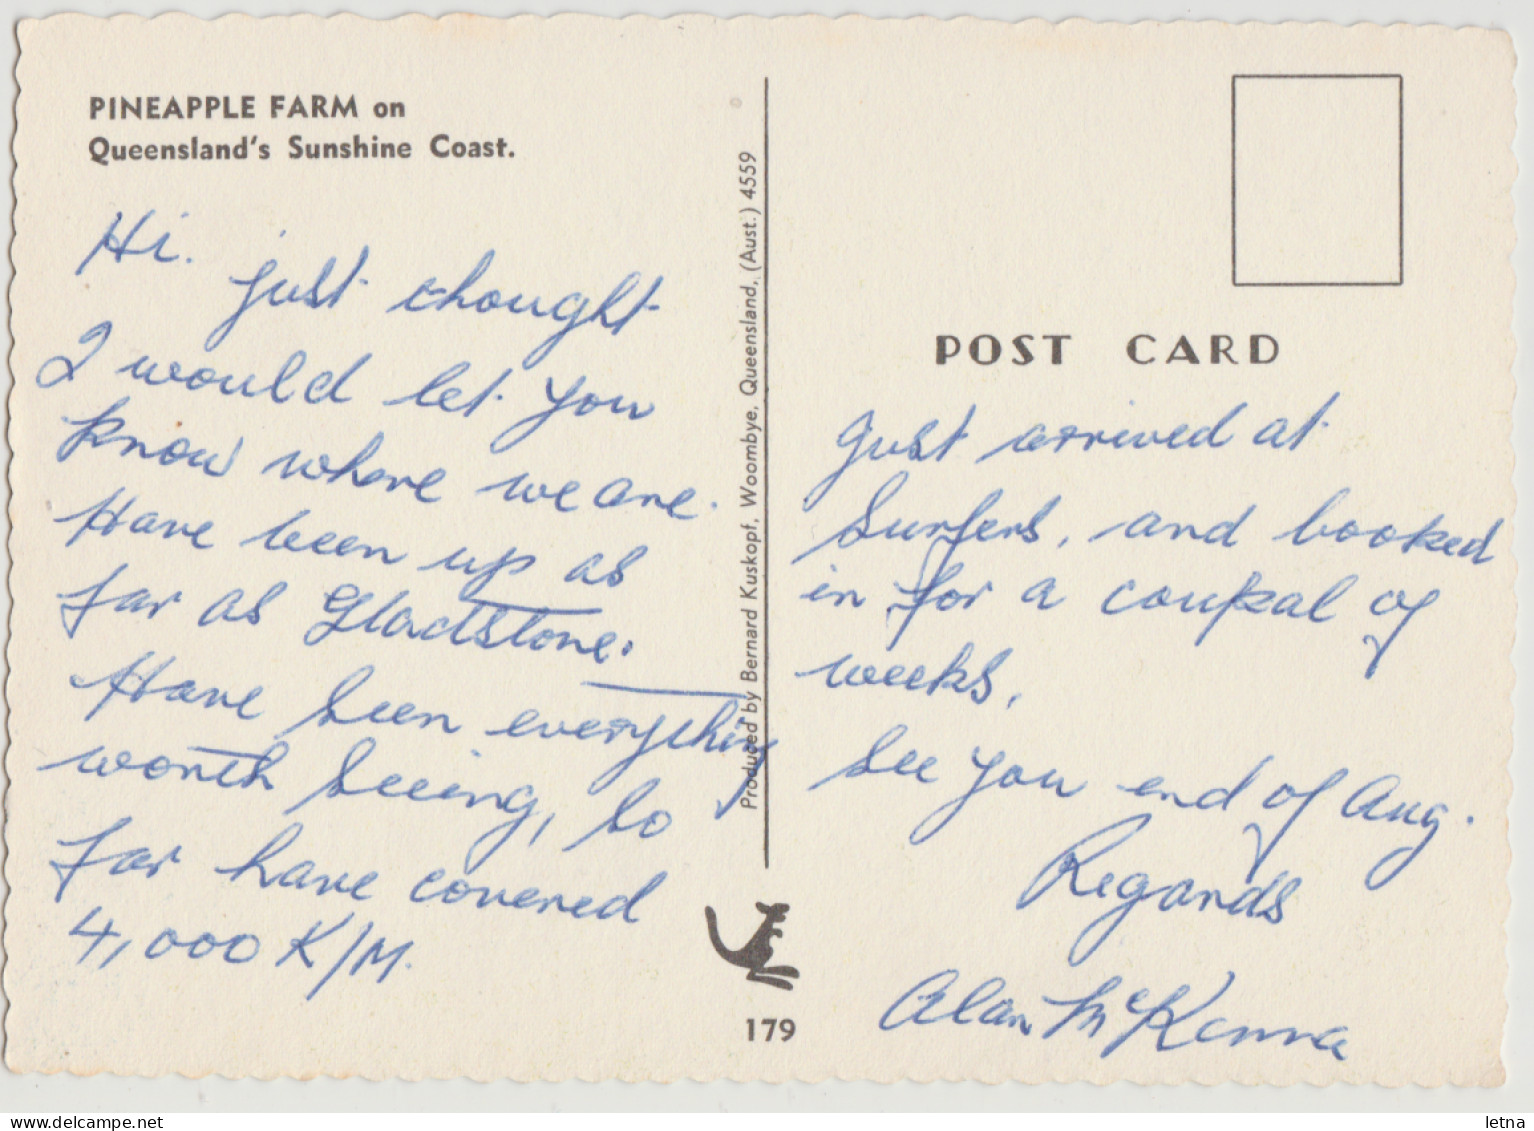 PINEAPPLE FARM on
Queensland's Sunshine Coast.
Hi. just thought
I would let you
know where we are.
Have been up as
far as Gladstone.
Have seen everything
worth seeing, so
far have covered
4,000 K/M.
Produced by Bernard Kuskopf, Woombye, Queensland, (Aust.) 4559
179
POST CARD
Just arrived at
Surfers, and booked
in for a coupal of
weeks.
See you end of Aug.
Regards
Alan McKenna
delcampe.net
letna